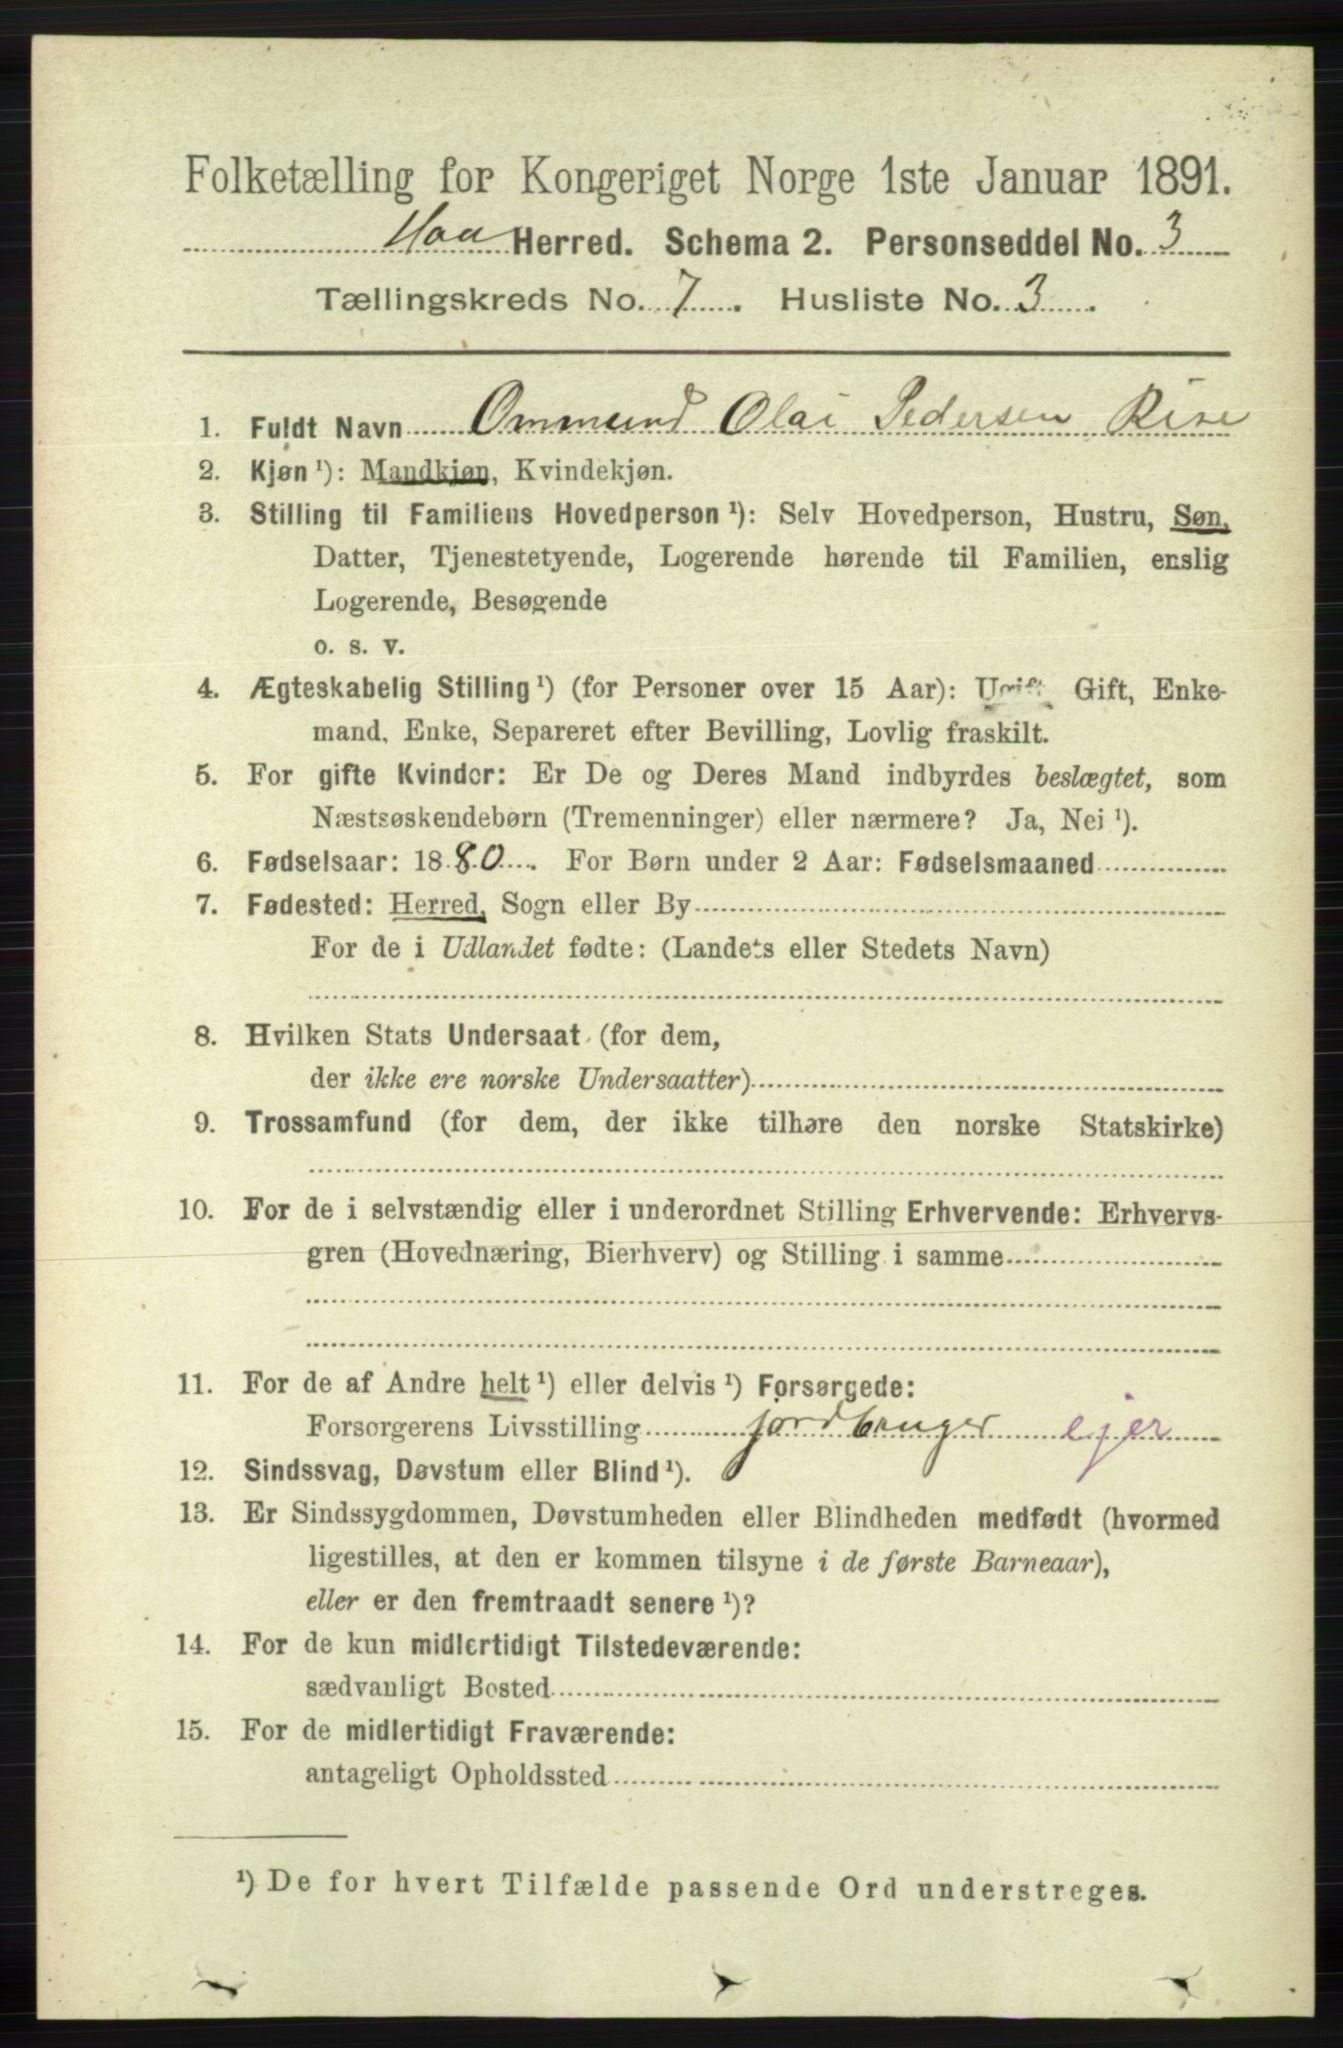 Folketælling for Kongeriget Norge 1ste Januar 1891.
Haa Herred. Schema 2. Personseddel No. 3
Tællingskreds No. 7. Husliste No. 3.
1. Fuldt Navn Ommund Olai Pedersen Rise
2. Kjøn ¹): Mandkjøn, Kvindekjøn.
3. Stilling til Familiens Hovedperson ¹): Selv Hovedperson, Hustru, Søn,
Datter, Tjenestetyende, Logerende hørende til Familien, enslig
Logerende, Besøgende
o. s. v.
4. Ægteskabelig Stilling ¹) (for Personer over 15 Aar): Ugift, Gift, Enke-
mand, Enke, Separeret efter Bevilling, Lovlig fraskilt.
5. For gifte Kvinder: Er De og Deres Mand indbyrdes beslægtet, som
Næstsøskendebørn (Tremenninger) eller nærmere? Ja, Nei ¹).
6. Fødselsaar: 1880. For Børn under 2 Aar: Fødselsmaaned
7. Fødested: Herred, Sogn eller By
For de i Udlandet fødte: (Landets eller Stedets Navn)
8. Hvilken Stats Undersaat (for dem,
der ikke ere norske Undersaatter)
9. Trossamfund (for dem, der ikke tilhøre den norske Statskirke)
10. For de i selvstændig eller i underordnet Stilling Erhvervende: Erhvervs-
gren (Hovednæring, Bierhverv) og Stilling i samme
11. For de af Andre helt ¹) eller delvis ¹) Forsørgede:
Forsorgerens Livsstilling jordbruger ejer
12. Sindssvag, Døvstum eller Blind ¹).
13. Er Sindssygdommen, Døvstumheden eller Blindheden medfødt (hvormed
ligestilles, at den er kommen tilsyne i de første Barneaar),
eller er den fremtraadt senere ¹)?
14. For de kun midlertidigt Tilstedeværende:
sædvanligt Bosted
15. For de midlertidigt Fraværende:
antageligt Opholdssted
¹) De for hvert Tilfælde passende Ord understreges.